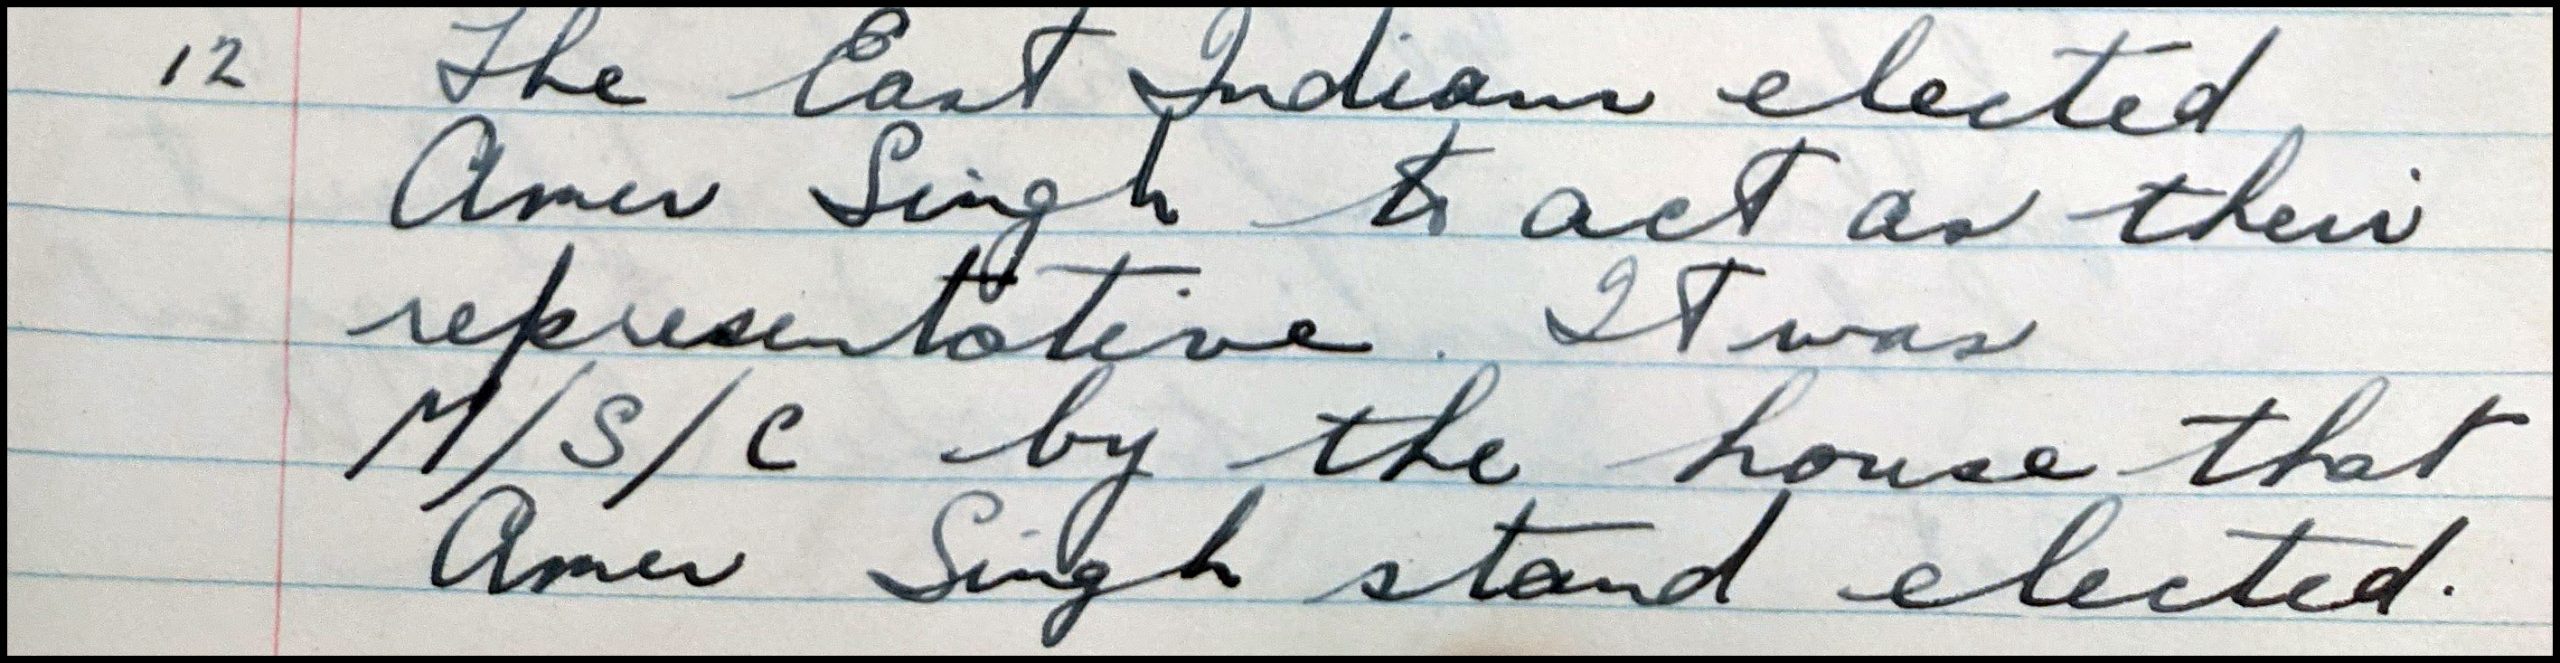 12 The East Indians elected
Amer Singh to act as their
representative. It was
M/S/C by the house that
Amer Singh stand elected.